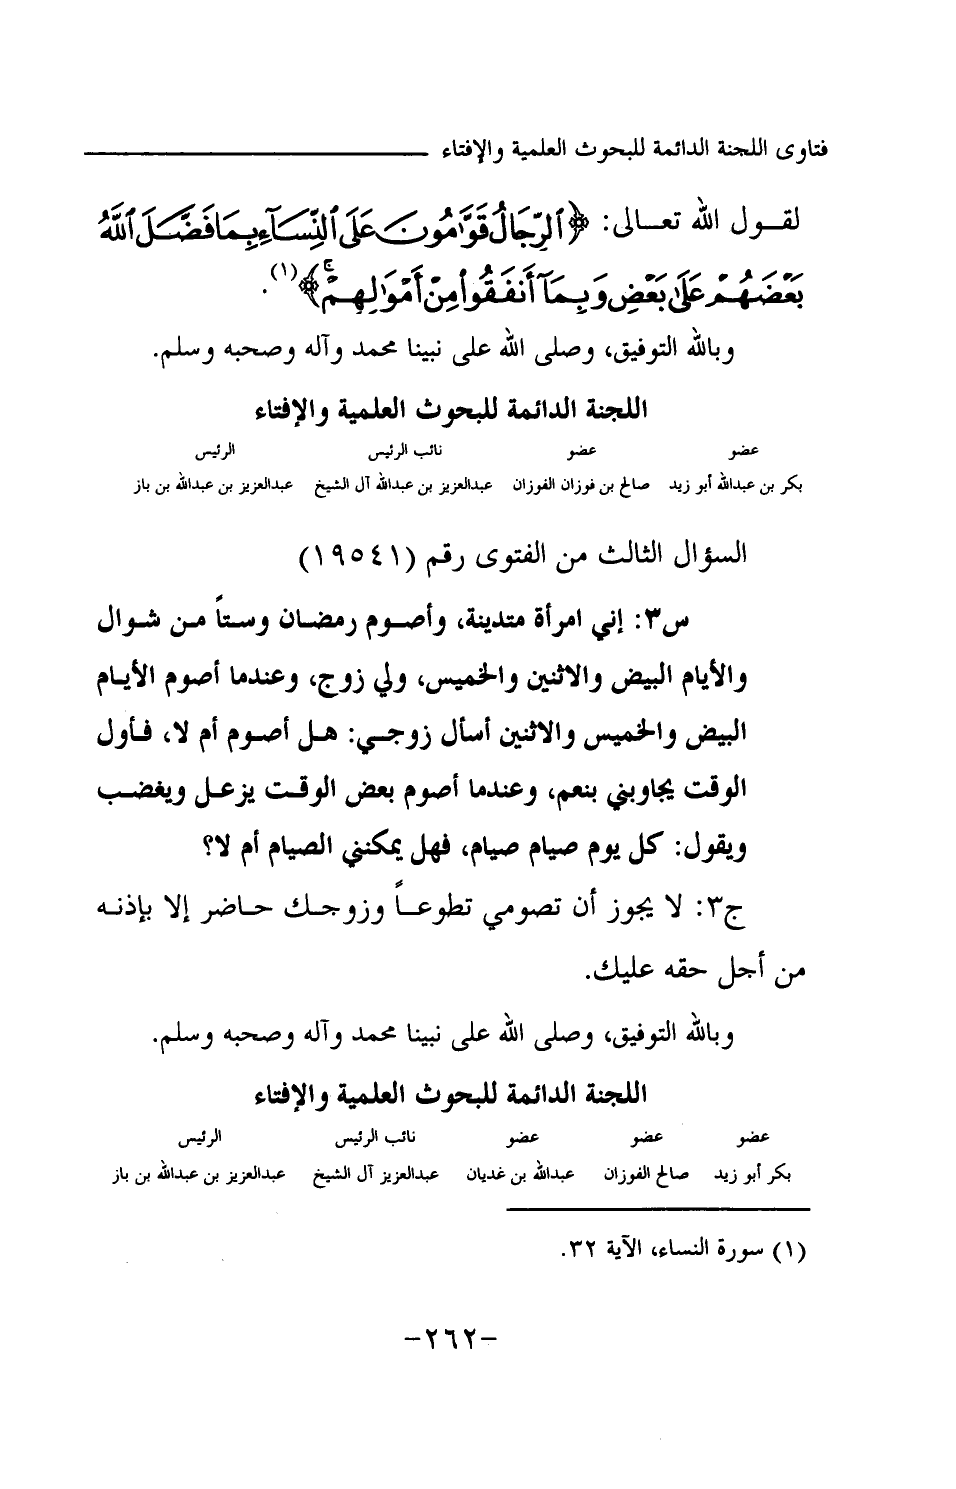 فتاوى اللجنة الدائمة للبحوث العلمية والإفتاء
لقـول الله تعـالى: ﴿ٱلرِّجَالُ قَوَّٰمُونَ عَلَى ٱلنِّسَآءِ بِمَا فَضَّلَ ٱللَّهُ
بَعْضَهُمْ عَلَىٰ بَعْضٍ وَبِمَآ أَنفَقُوا۟ مِنْ أَمْوَٰلِهِمْ ۚ﴾(١).
وبالله التوفيق، وصلى الله على نبينا محمد وآله وصحبه وسلم.
اللجنة الدائمة للبحوث العلمية والإفتاء
عضو عضو نائب الرئيس الرئيس
بكر بن عبدالله أبو زيد صالح بن فوزان الفوزان عبدالعزيز بن عبدالله آل الشيخ عبدالعزيز بن عبدالله بن باز
السؤال الثالث من الفتوى رقم (١٩٥٤١)
س٣: إني امرأة متدينة، وأصـوم رمضـان وسـتاً مـن شـوال
والأيام البيض والاثنين والخميس، ولي زوج، وعندما أصوم الأيـام
البيض والخميس والاثنين أسأل زوجـي: هـل أصـوم أم لا، فـأول
الوقت يجاوبني بنعم، وعندما أصوم بعض الوقـت يزعـل ويغضـب
ويقول: كل يوم صيام صيام، فهل يمكنني الصيام أم لا؟
ج٣: لا يجوز أن تصومي تطوعـاً وزوجـك حـاضر إلا بإذنـه
من أجل حقه عليك.
وبالله التوفيق، وصلى الله على نبينا محمد وآله وصحبه وسلم.
اللجنة الدائمة للبحوث العلمية والإفتاء
عضو عضو عضو نائب الرئيس الرئيس
بكر أبو زيد صالح الفوزان عبدالله بن غديان عبدالعزيز آل الشيخ عبدالعزيز بن عبدالله بن باز
(١) سورة النساء، الآية ٣٢.
-٢٦٢-